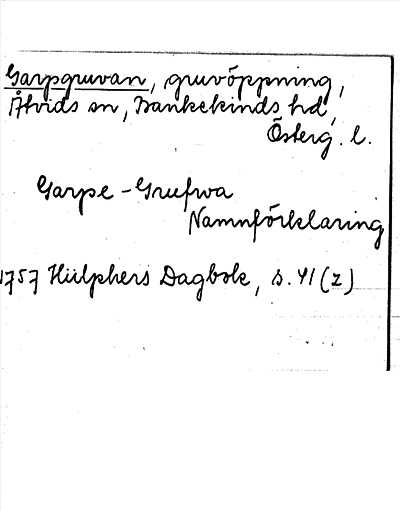 Garpgruvan, gruvöppning,
Åtvids sn, Bankekinds hd,
Österg. l.
Garpe-Grufwa
Namnförklaring
1757 Hülphers Dagbok, s. 41 (2)